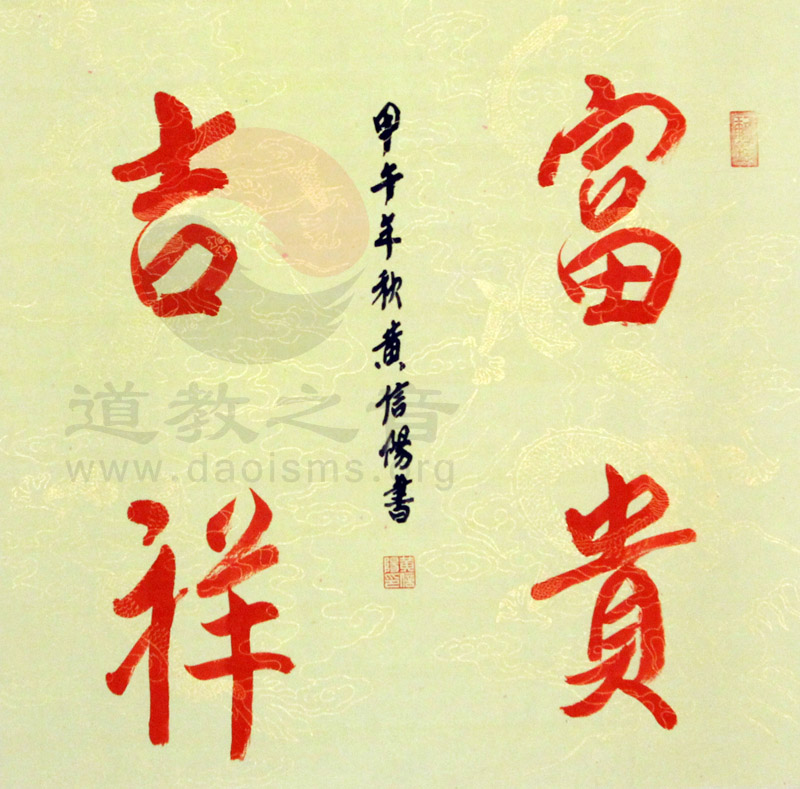 富貴
吉祥
甲午年秋黄信陽書
道教之音
www.daoisms.org